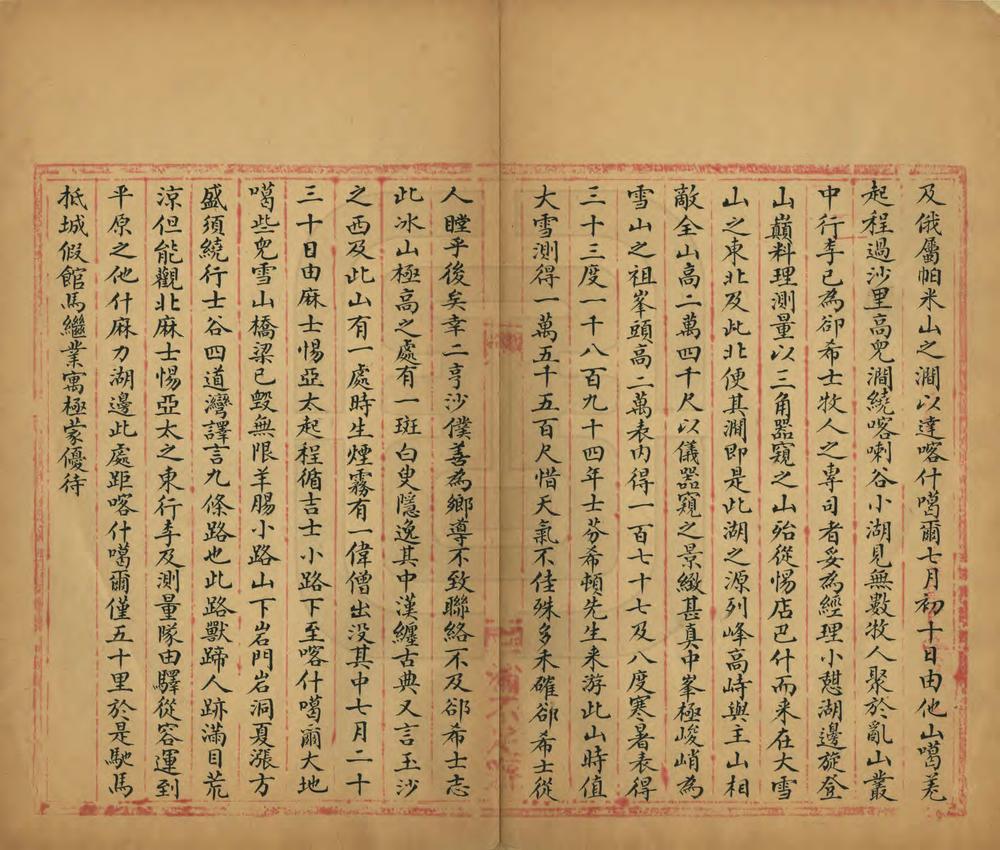 及俄屬帕米山之澗以達喀什噶爾七月初十日由他山噶羌
起程過沙里高兒澗繞喀喇谷小湖見無數牧人聚於亂山叢
中行李已為郤希士牧人之專司者妥為經理小憩湖邊旋登
山巔料理測量以三角器窺之山殆從惕店巴什而来在大雪
山之東北及此此北便其澗即是此湖之源列峰高峙與主山相
敵全山高二萬四千尺以儀器窺之景緻甚真中峯極峻峭為
雪山之祖峯頭高二萬表内得一百七十七及八度寒暑表得
三十三度一千八百九十四年士芬希頓先生来游此山時值
大雪測得一萬五千五百尺惜天氣不佳殊多未確郤希士從
人瞠乎後矣幸二亨沙僕善為鄉導不致聯絡不及郤希士志
此冰山極高之處有一班白叟隱逸其中漢纏古典又言玉沙
之西及此山有一處時生煙霧有一偉僧出没其中七月二十
三十日由麻士惕亞太起程循吉士小路下至喀什噶爾大地
噶些兜雪山橋梁已毀無限羊腸小路山下岩門岩洞夏漲方
盛須繞行士谷四道灣譯言九條路也此路獸蹄人跡滿目荒
涼但能觀北麻士惕亞太之東行李及測量隊由驛從容運到
平原之他什麻力湖邊此處距喀什噶爾僅五十里於是馳馬
抵城假館馬繼業寓極蒙優待